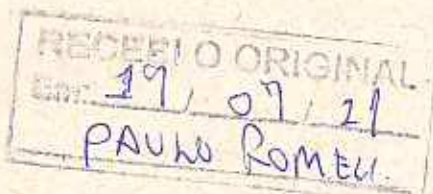 RECEBI O ORIGINAL
Em: 19 / 07 / 21
PAULO ROMEU.